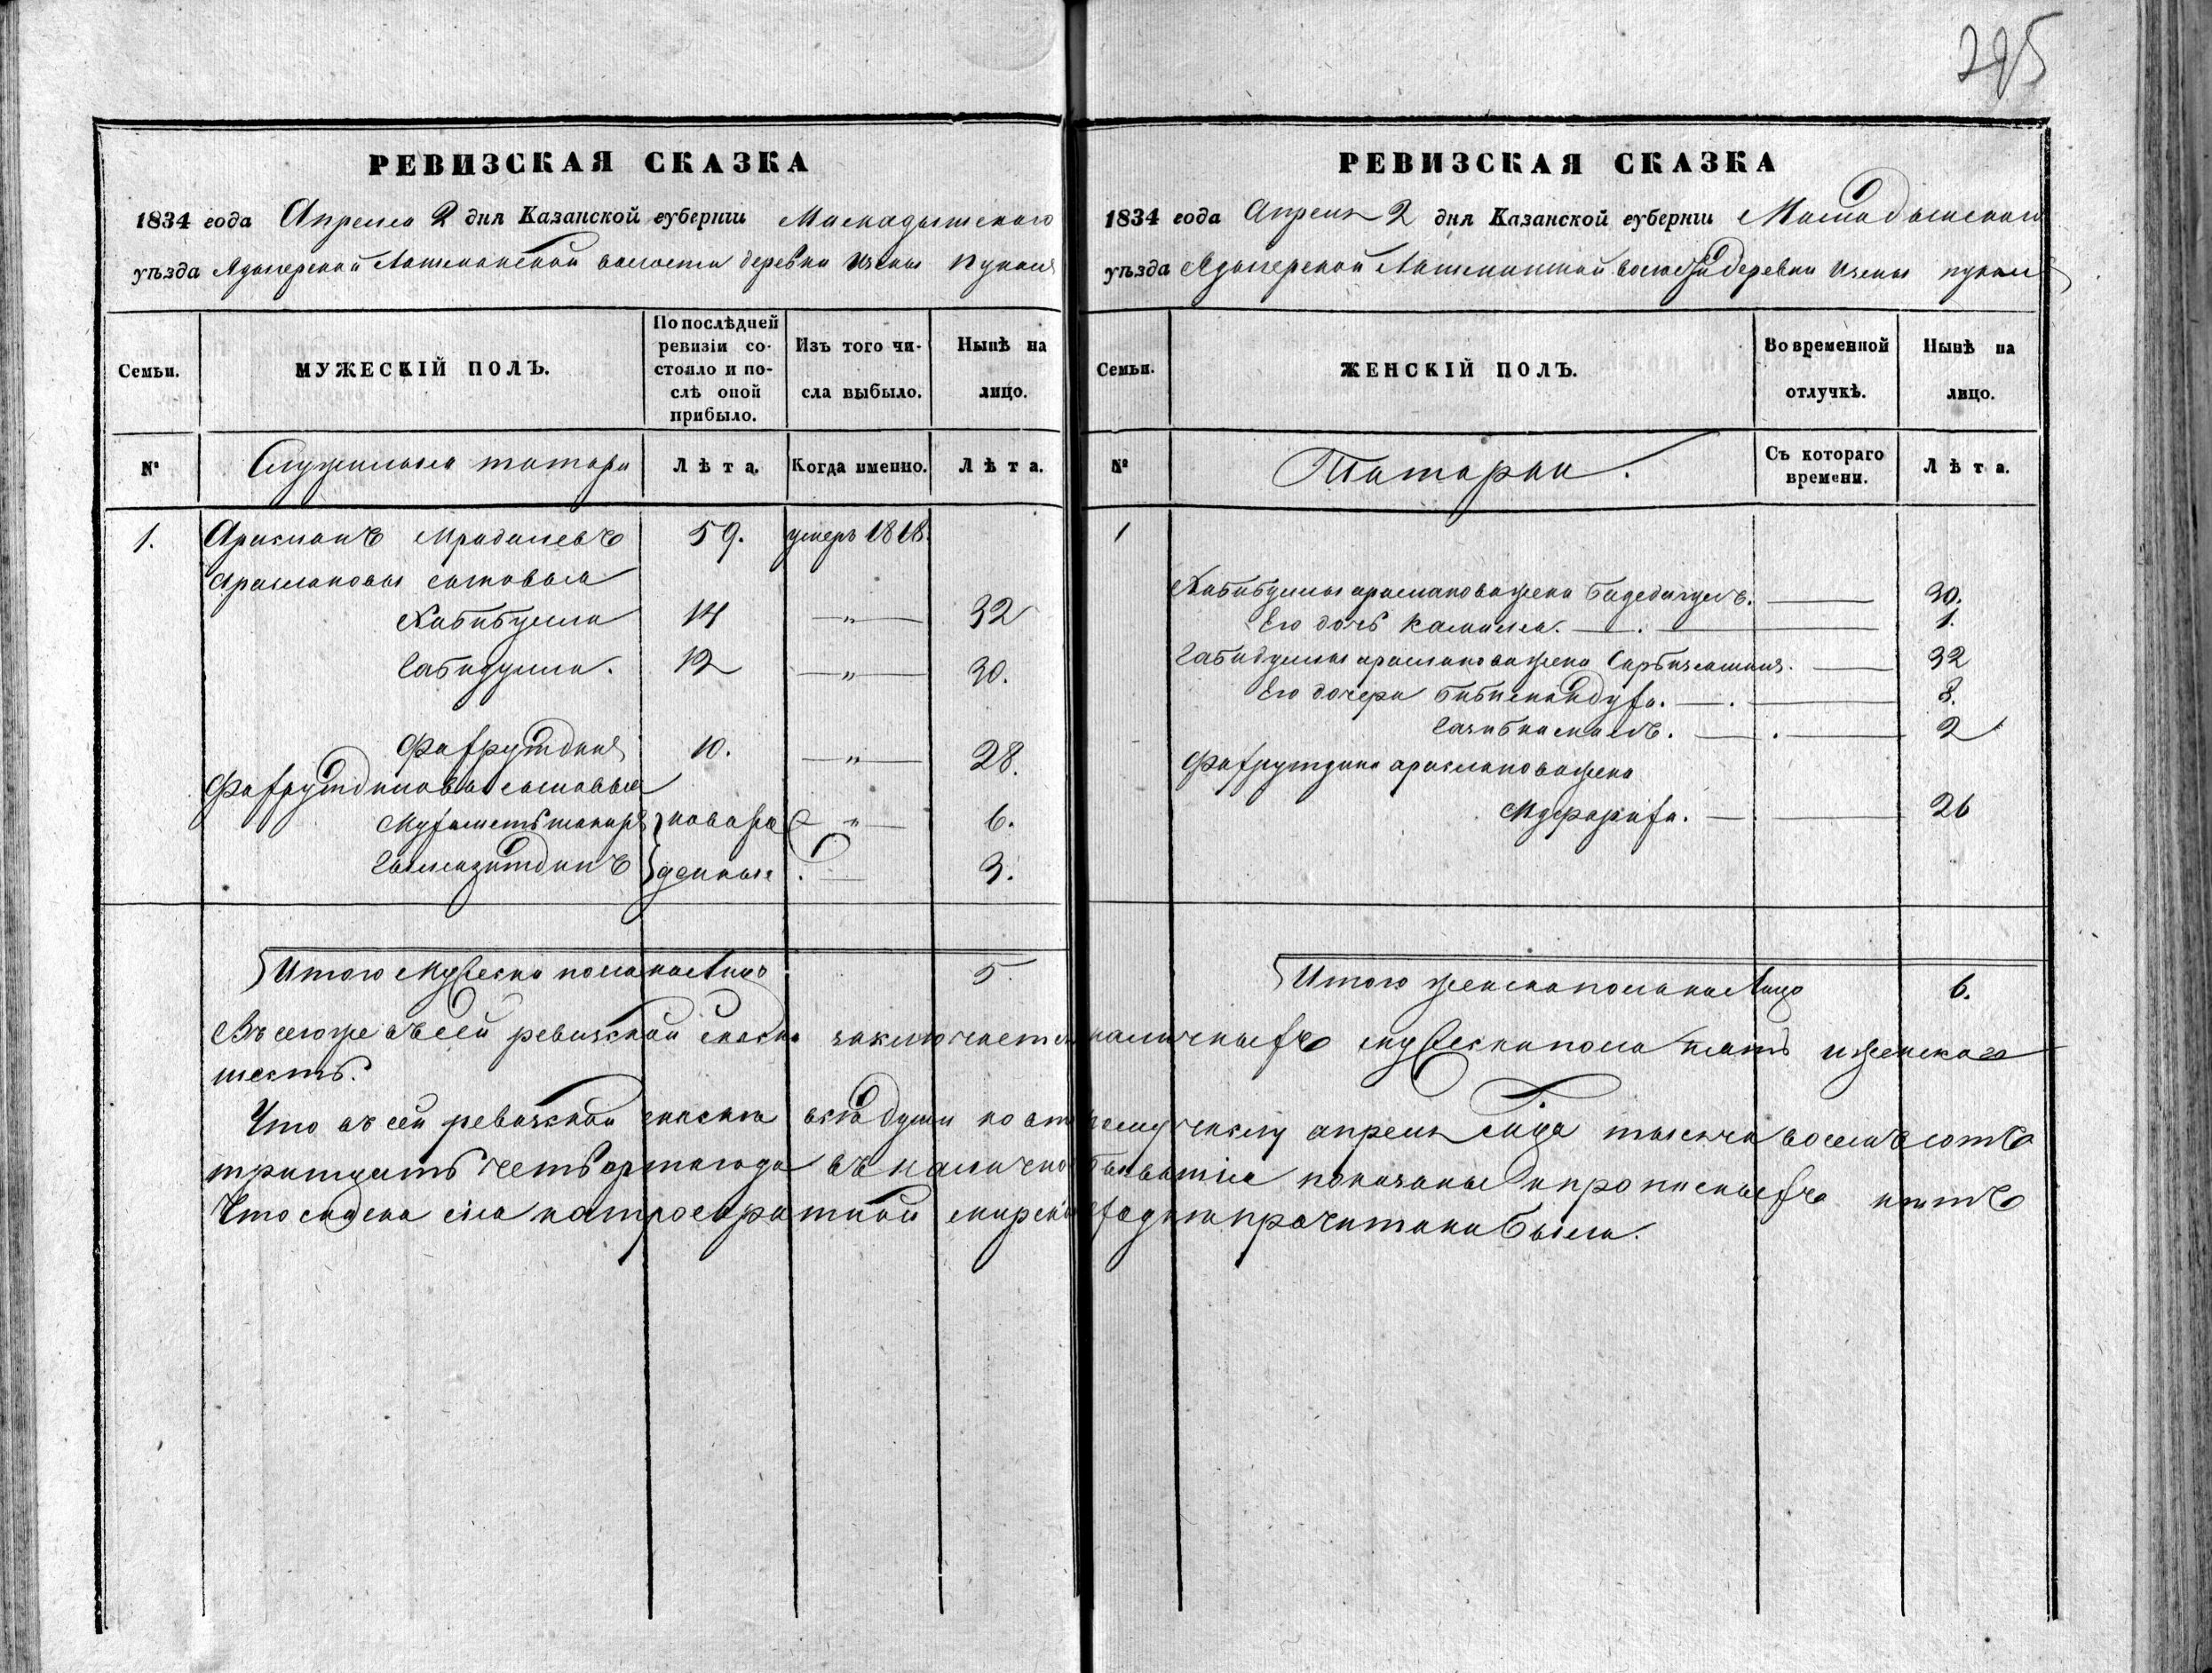 295
РЕВИЗСКАЯ СКАЗКА
1834 года Апреля 2 дня Казанской губернiи Мамадышского
уѣзда Лашманской волости деревни
Семьи.
МУЖЕСКIЙ ПОЛЪ.
По послѣдней ревизiи состояло и послѣ оной прибыло.
Изъ того числа выбыло.
Нынѣ на лицо.
№
Служилыя татары
Лѣта.
Когда именно.
Лѣта.
1. Арасланъ 59. умеръ 1818.
Араслановы сыновья
Хабибулла 14 — „ — 32
Габидулла. 12 — „ — 30.
Фахрутдин 10. — „ — 28.
Фахрутдиновы сыновья
Мухаметшакиръ новоро — „ — 6.
денные . — 3.
Итого Мужеска пола на Лицо 5.
РЕВИЗСКАЯ СКАЗКА
1834 года Апреля 2 дня Казанской губернiи Мамадышскаго
уѣзда Лашманской волости деревни
Семьи.
ЖЕНСКIЙ ПОЛЪ.
Во временной отлучкѣ.
Нынѣ на лицо.
№
Татарки.
Съ котораго времени.
Лѣта.
1
Хабибуллы арасланова жена — 30.
Его дочь Камиля. — . — 1.
Габидуллы арасланова жена — 32
Его дочери — . — 3.
— . — 2
Фахрутдина арасланова жена
— . — 26
Итого женска пола на Лицо 6.
Въсегоже въ сей ревизской скаски заключается наличныхъ мужеска пола пять и женскаго
шесть.
Что въ сей ревизской скаски всѣ души по второму числу апреля мца тысяча восемъ сотъ
тритцать четвертаго года въ налично бывшие показаны и прописныхъ нетъ
Что сия на троекратной мирской сходки прочитана была.